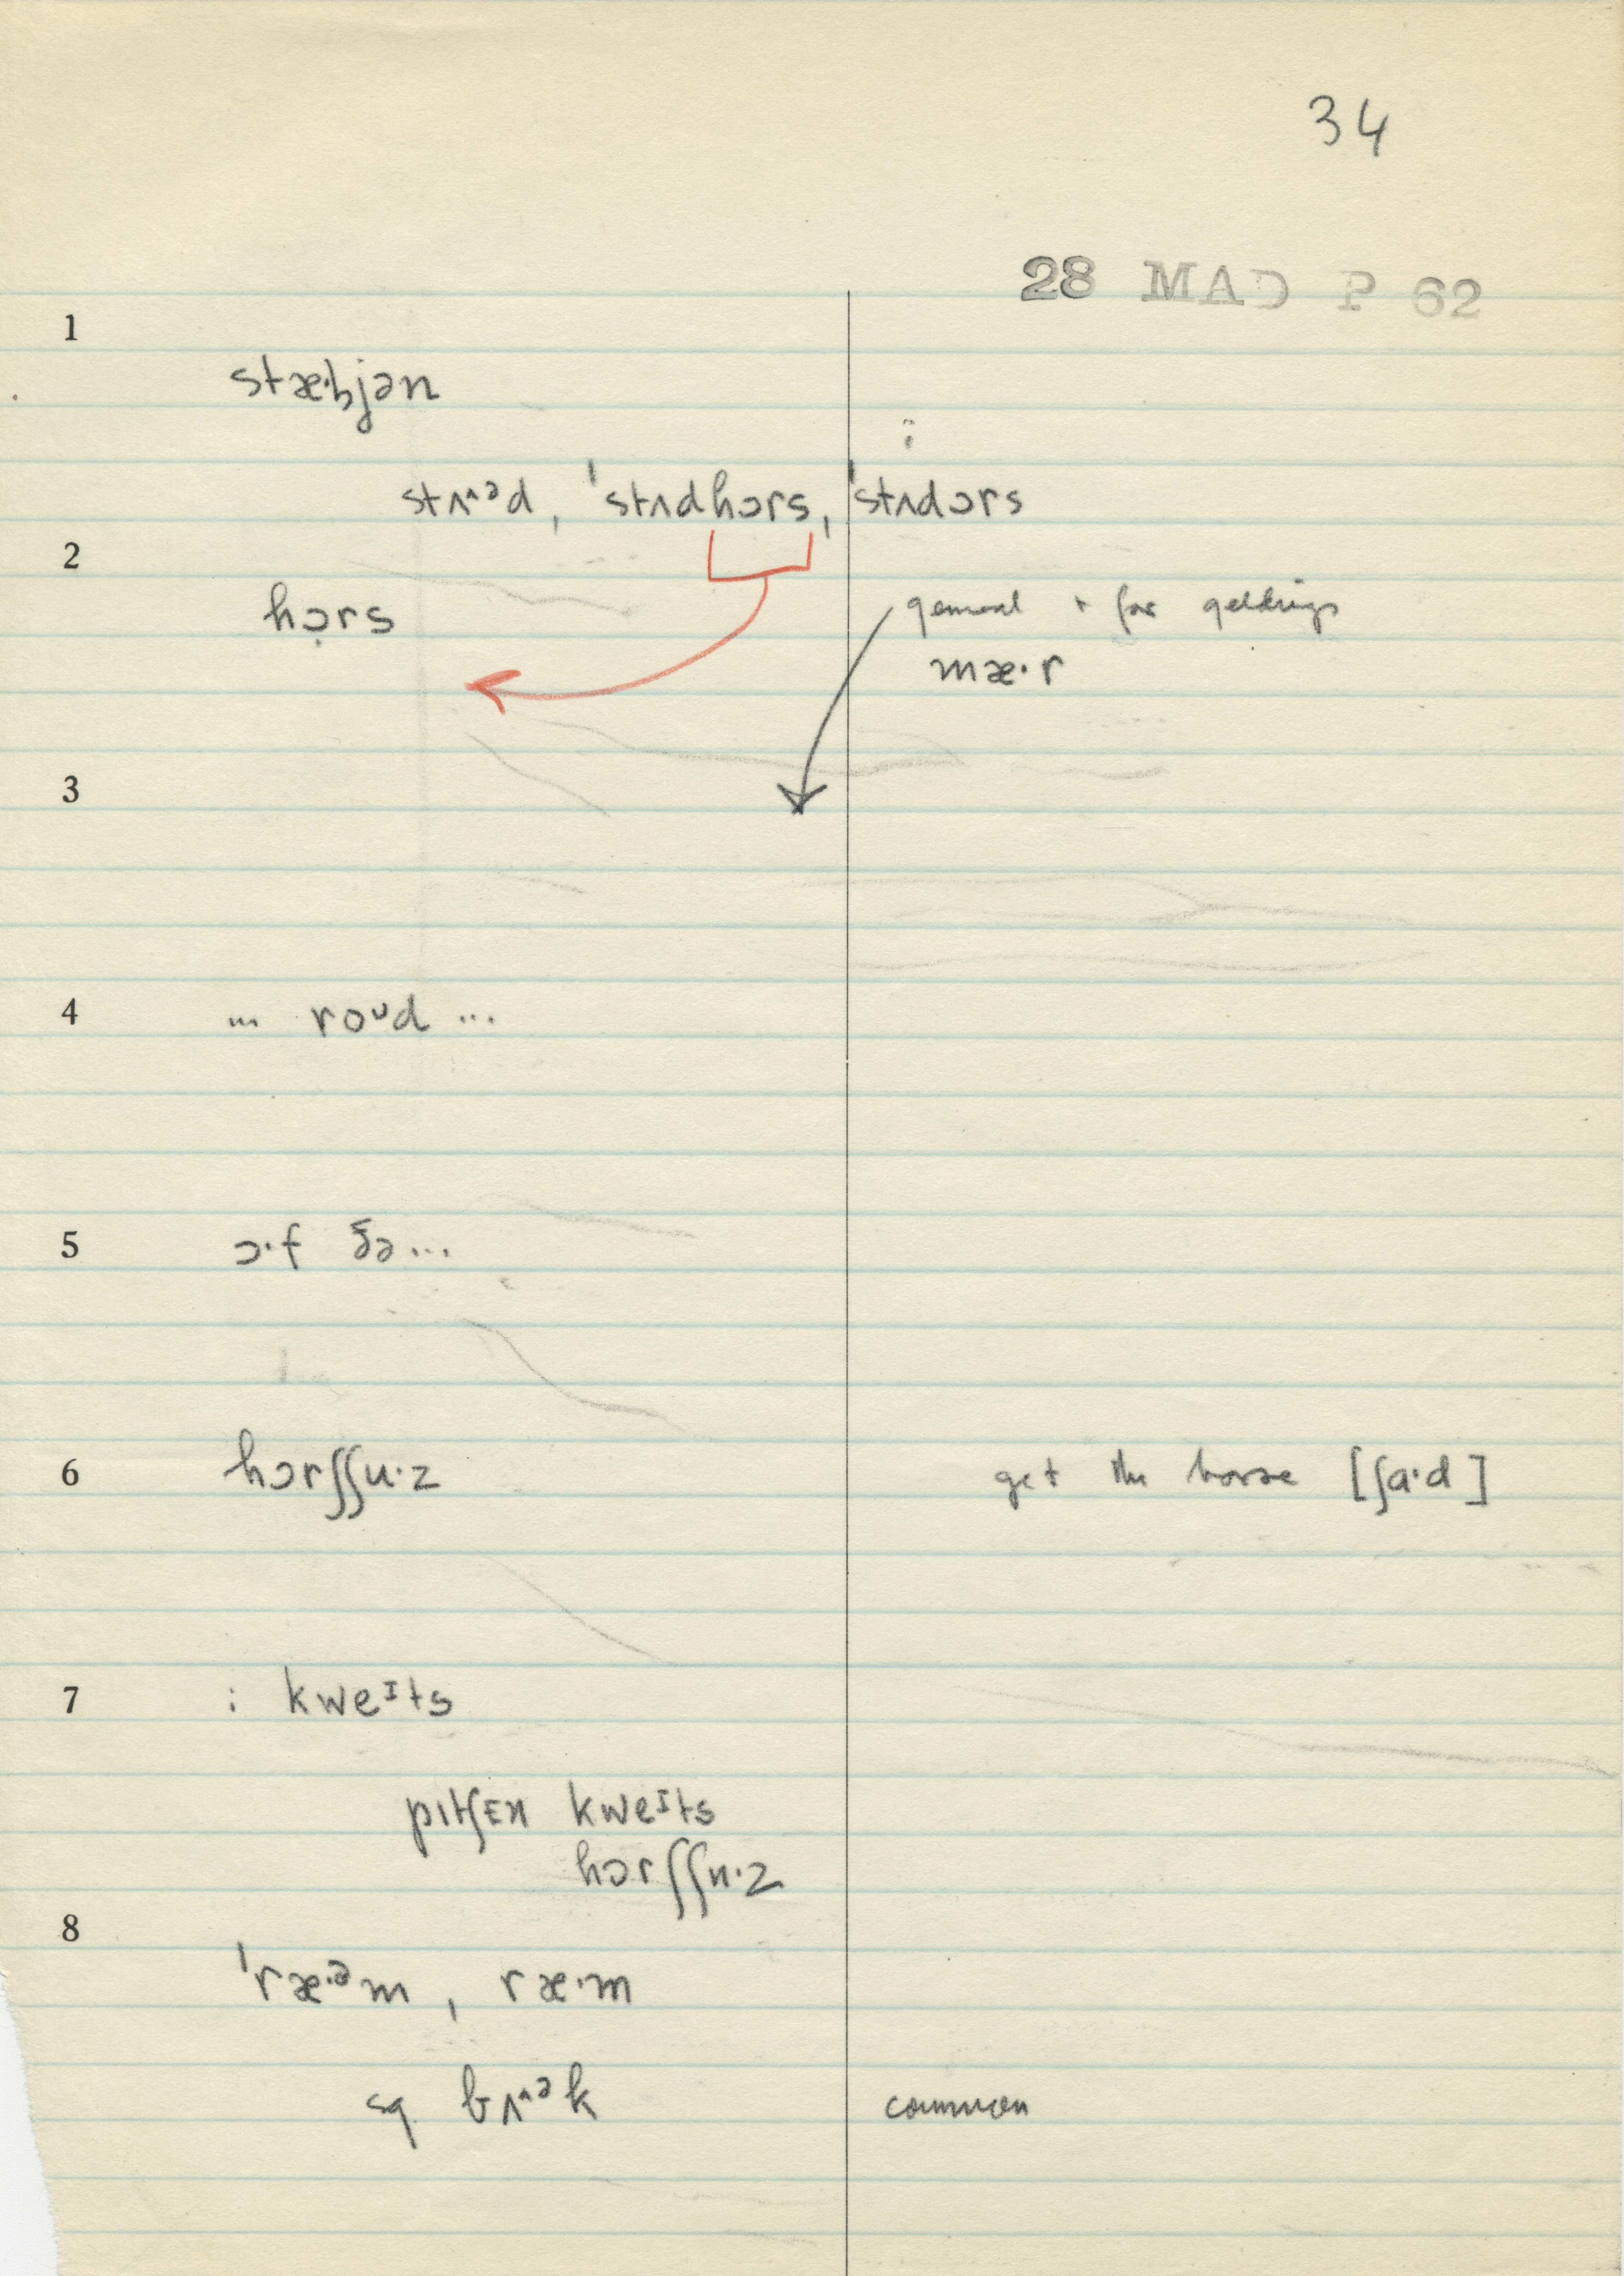 34
28 MAD P 62
1
stæ·bjən
stʌʌəd, ˈstʌdhɔrs, ˈstʌdɔrs
2
hɔ̣rs
general + for geldings
mæ·r
3
4 ... roᴜd ...
5 ɔ·f ðə...
6 hɔrʃʃu·z get the horse [ʃɑ·d]
7 : kweᴵts
pɪtʃᴇn kweᴵts
hɔrʃʃu·z
8
ˈræ·ᵊm, ræ·m
sq bʌʌᵊk common